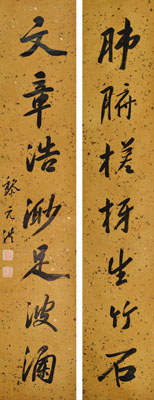 肺腑槎枒生竹石
文章浩渺足波澜
黎元洪